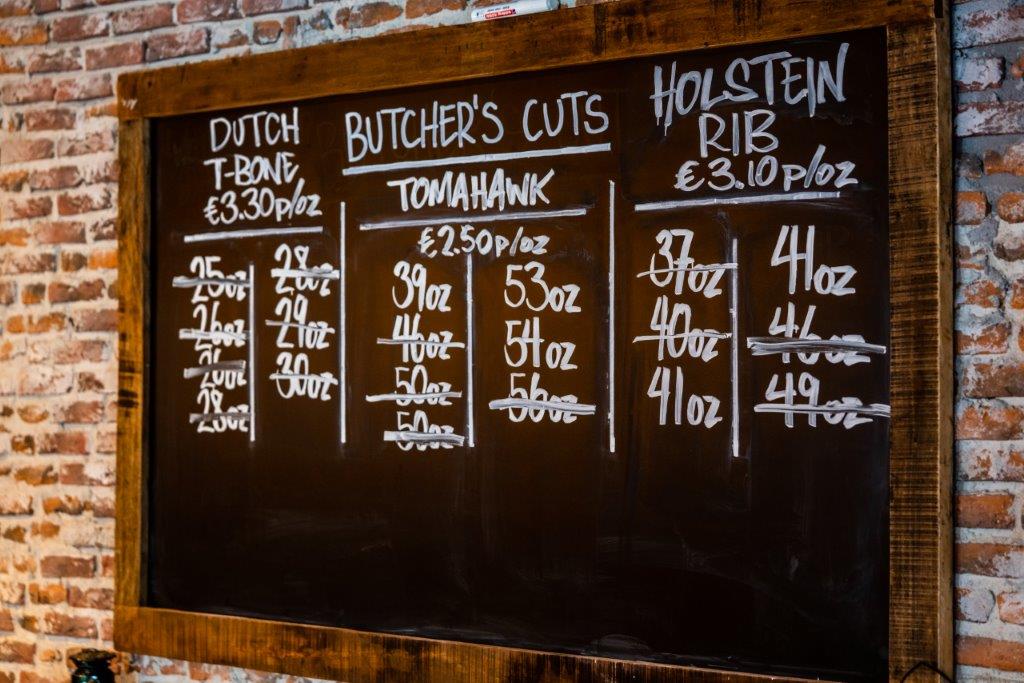 BUTCHER'S CUTS
DUTCH
T-BONE
€3.30 p/oz
25oz
26oz
26oz
28oz
28oz
29oz
30oz
TOMAHAWK
€2.50 p/oz
39oz
46oz
50oz
50oz
53oz
54oz
56oz
HOLSTEIN
RIB
€3.10 p/oz
37oz
40oz
41oz
41oz
46oz
49oz